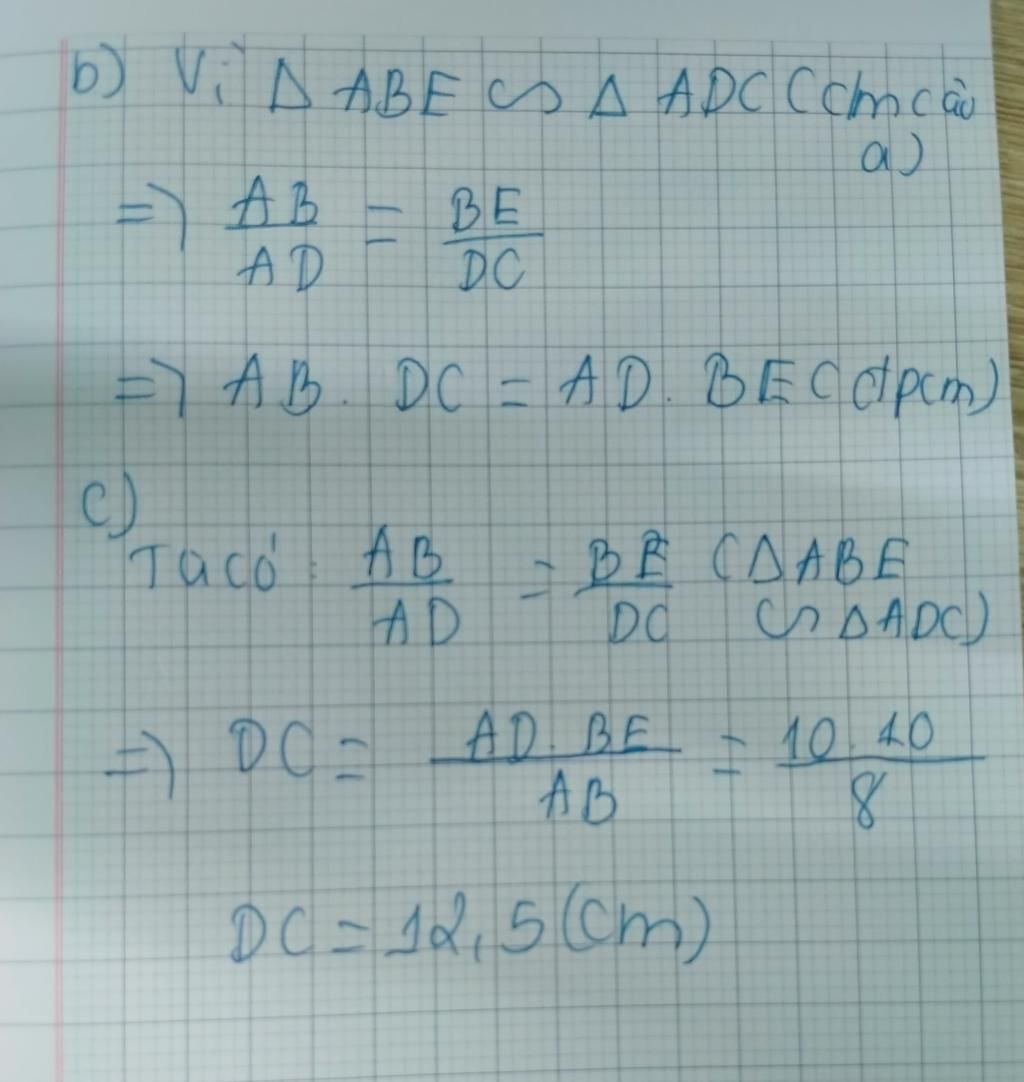 b) Vì Δ ABE ∽ Δ ADC (cm câu
a)
=> AB/AD = BE/DC
=> AB . DC = AD . BE (đpcm)
c)
Ta có : AB/AD = BE/DC (Δ ABE
∽ Δ ADC)
=> DC = AD . BE/AB = 10 . 10/8
DC = 12,5 (cm)